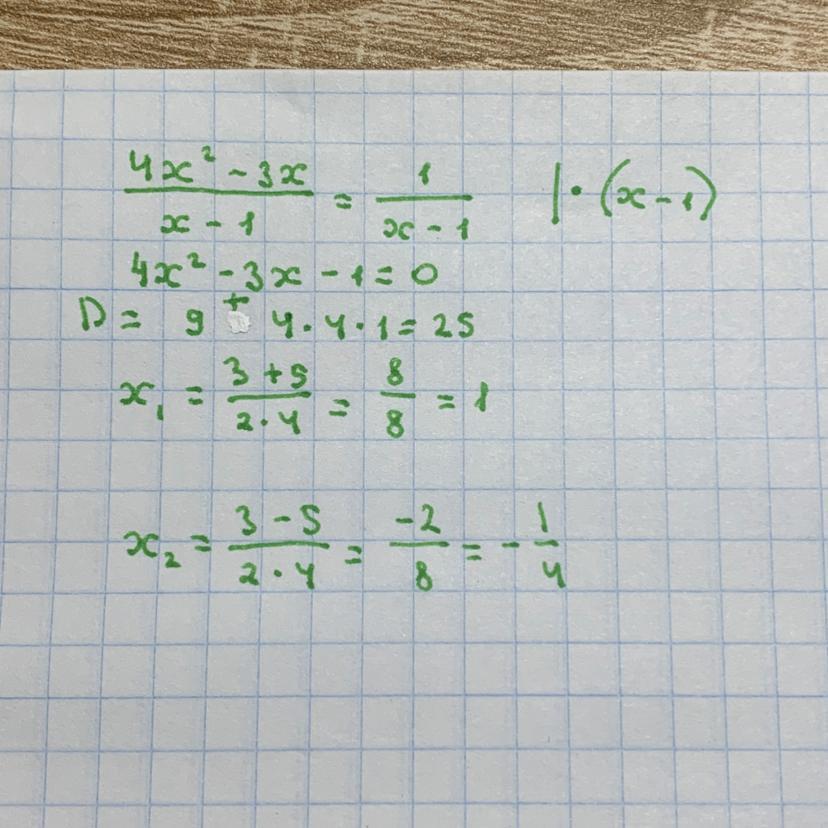 (4x² - 3x)/(x - 1) = 1/(x - 1) | · (x - 1)
4x² - 3x - 1 = 0
D = 9 + 4 · 4 · 1 = 25
x₁ = (3 + 5)/(2 · 4) = 8/8 = 1
x₂ = (3 - 5)/(2 · 4) = -2/8 = - 1/4